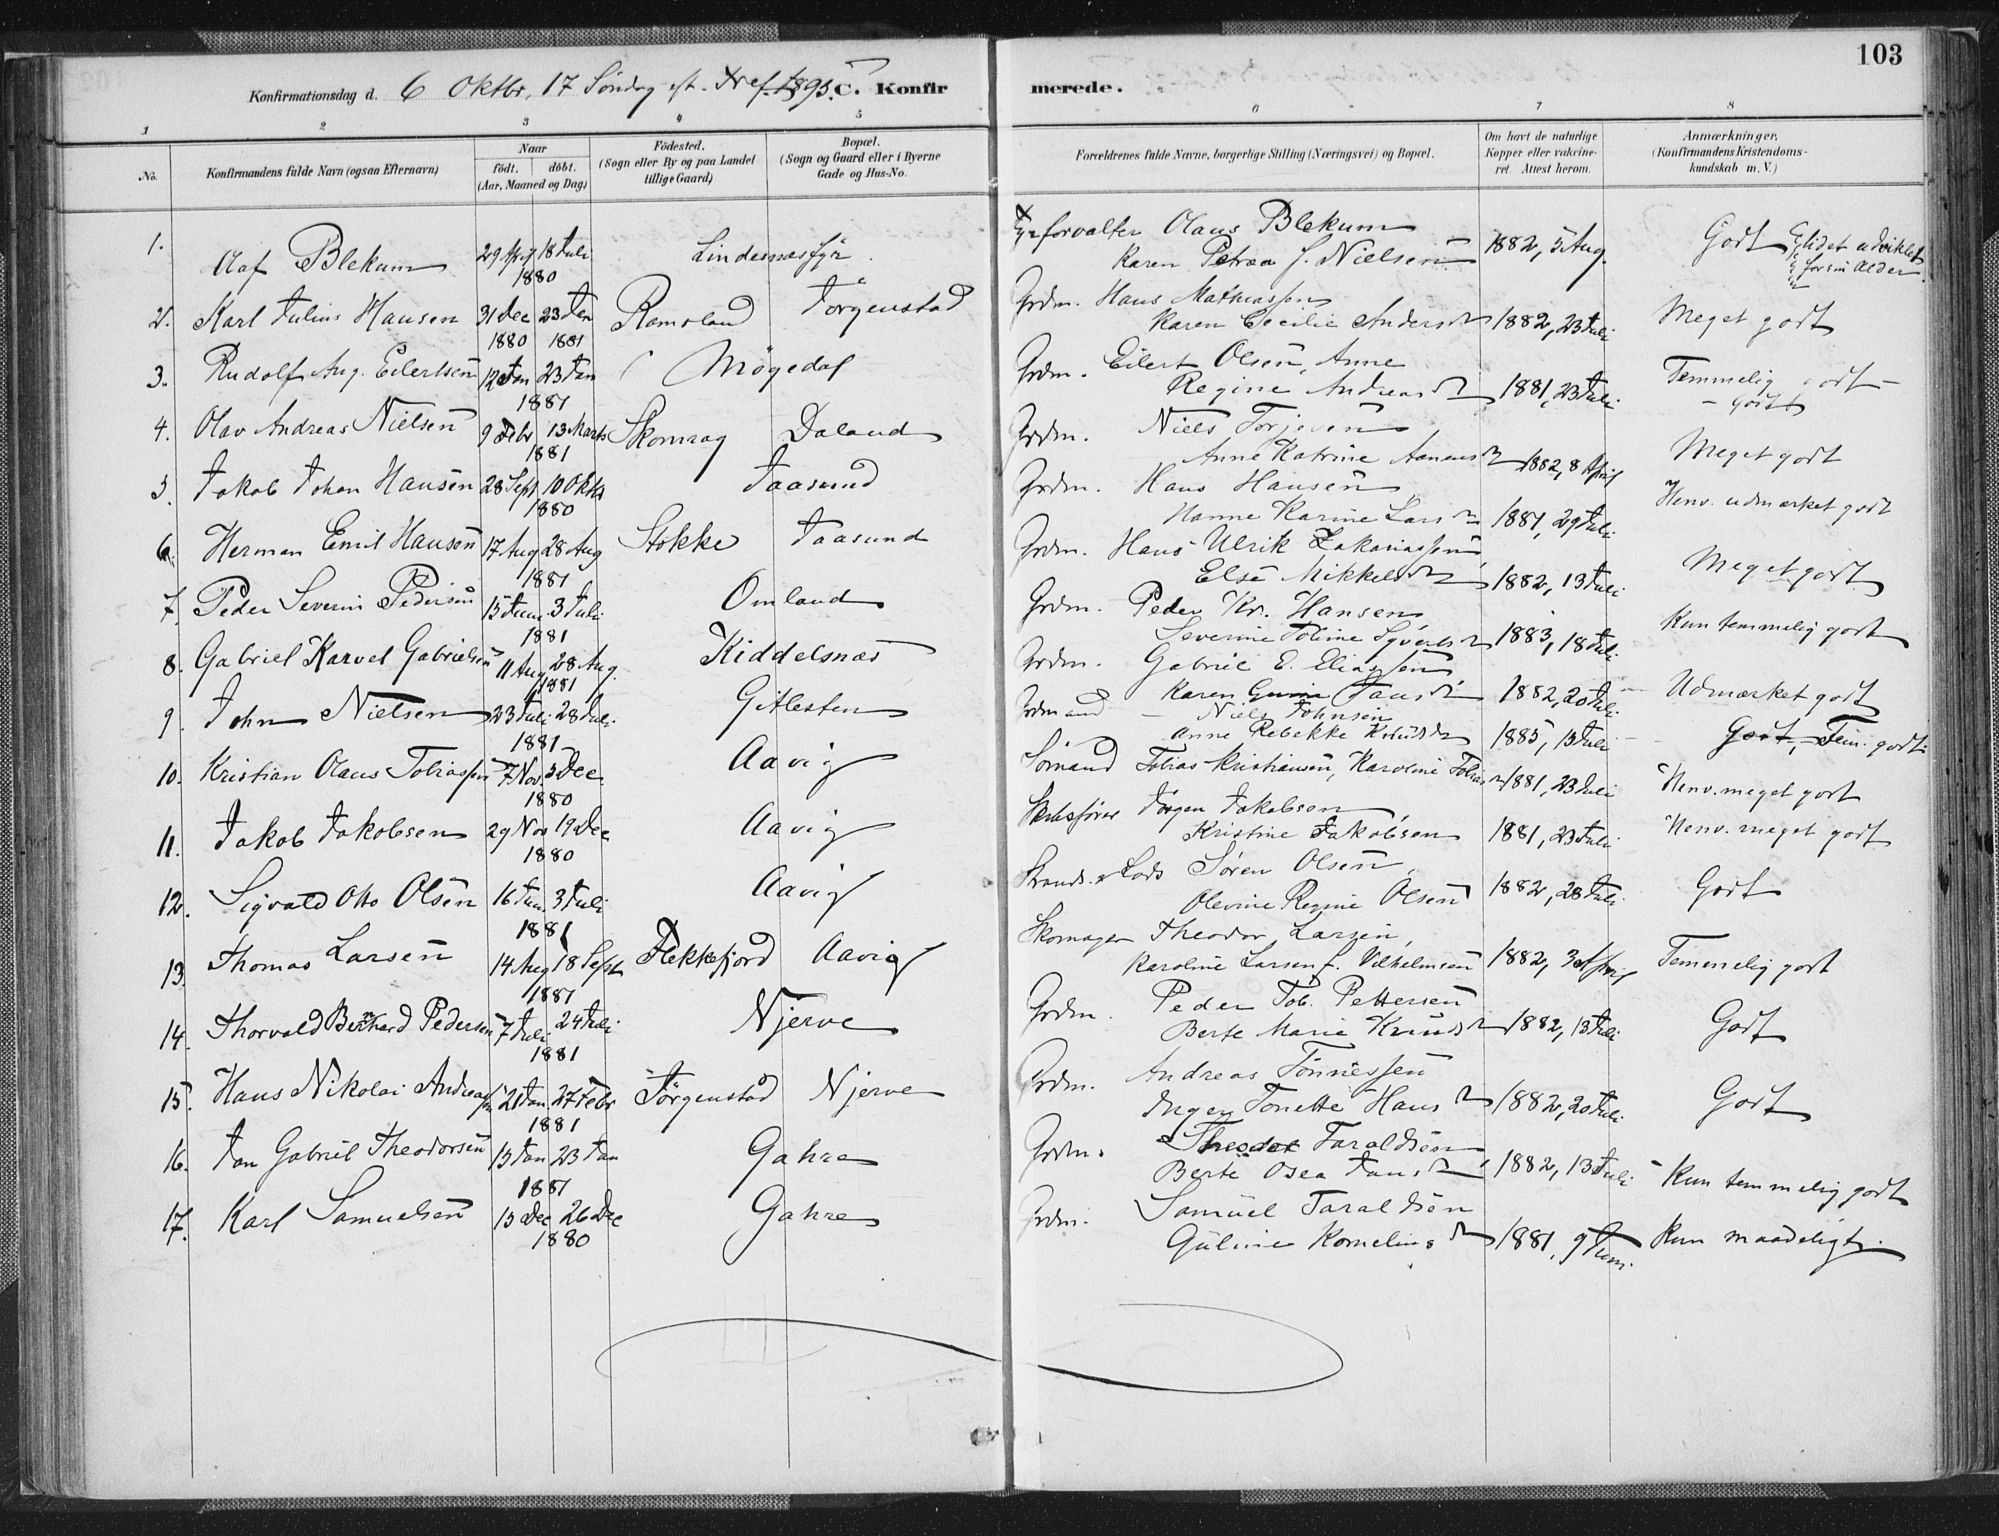 103
Konfirmationsdag d. 6 Oktbr. 17 Söndag eft. Tref. 1895. C. Konfirmerede.
1 2 3 4 5 6 7 8
No. Konfirmandens fulde Navn (ogsaa Efternavn) Naar födt. döbt. (Aar, Maaned og Dag) Födested. (Sogn eller By og paa Landet tillige Gaard) Bopæl. (Sogn og Gaard eller i Byerne Gade og Hus-No. Forældrenes fulde Navne, borgerlige Stilling (Næringsvei) og Bopæl. Om havt de naturlige Kopper eller vakcineret. Attest herom. Anmærkninger. (Konfirmandens Kristendomskundskab m. V.)
1. Olaf Blekum 29 Apr 18 Juli 1880 Lindesnæsfyr. Fyrforvalter Olaus Blekum
Karen Petrea f. Nielsen 1882, 5 Aug. Godt lidet udviklet for sin Alder
2. Karl Julius Hansen 31 Dec 1880 23 Jan 1881 Ramsland Jörgenstad Grdm. Hans Mathiassen
Karen Cecilie Andersdr 1882, 23 Juli Meget godt
3. Rudolf Aug. Eilertsen 12 Jan 23 Jan 1881 Mögedal Grdm. Eilert Olsen, Anne
Regine Andreasdr 1881, 23 Juli Temmelig godt - - godt
4. Olav Andreas Nielsen 9 Febr 13 Marts 1881 Skomrag Daland Grdm. Niels Torjesen
Anne Katrine Aanensdr 1882, 8 April Meget godt
5. Jakob Johan Hansen 28 Sept 10 Oktb 1880 Jaasund Grdm. Hans Hansen
Hanne Karine Larsdr 1881, 29 Juli Henv. udmærket godt
6. Herman Emil Hansen 17 Aug 28 Aug 1881 Stokke Jaasund Grdm. Hans Ulrik Zakariassen
Else Mikkelsdr 1882, 13 Juli Meget godt
7. Peder Severin Pedersen 15 Juni 3 Juli 1881 Omland Grdm. Peder Kr. Hansen
Severine Toline Syvertsdr 1883, 18 Juli Kun temmelig godt
8. Gabriel Karvel Gabrielsen 11 Aug 28 Aug. 1881 Kiddelsnæs Grdm. Gabriel E. Eliassen
Karen Jansdr 1882, 20 Juli Udmærket godt
9. John Nielsen 23 Juli 28 Juli 1881 Gitlesten Grdmand Niels Johnsen
Anne Rebekke Knudsdr 1885, 13 Juli Godt, Tem. godt
10. Kristian Olaus Tobiassen 7 Nov. 5 Dec 1880 Aavig Sömand Tobias Kristiansen, Karoline Tobiasdr 1881, 23 Juli Henv. meget godt
11. Jakob Jakobsen 29 Nov 19 Dec 1880 Aavig Skibsförer Jörgen Jakobsen
Kristine Jakobsen 1881, 23 Juli Henv. meget godt
12. Sigvald Otto Olsen 16 Juni 3 Juli 1881 Aavig Lods Sören Olsen,
Olevine Regine Olsen 1882, 28 Juli Godt
13. Thomas Larsen 14 Aug 18 Sept 1881 Flekkefjord Aavig Skomager Theodor Larsen,
Karoline Larsen f. Vilhelmsen 1882, 3 April Temmelig godt
14. Thorvald Bernhard Pedersen 7 Juli 24 Juli 1881 Njerve Grdm. Peder Tob. Pettersen
Berte Marie Knudsdr 1882, 13 Juli Godt
15. Hans Nikolai Andreassen 21 Jan. 27 Febr 1881 Jörgenstad Njerve Grdm. Andreas Tönnessen
Inger Tonette Hansdr 1882, 20 Juli Godt
16. Jan Gabriel Theodorsen 15 Jan 23 Jan 1881 Gahre Grdm. Theodor Taraldsen
Berte Osea Jansdr 1882, 13 Juli Kun temmelig godt
17. Karl Samuelsen 15 Dec 26 Dec 1880 Gahre Grdm. Samuel Taraldsen
Guline Korneliusdr 1881, 9 Juni. Kun maadeligt.